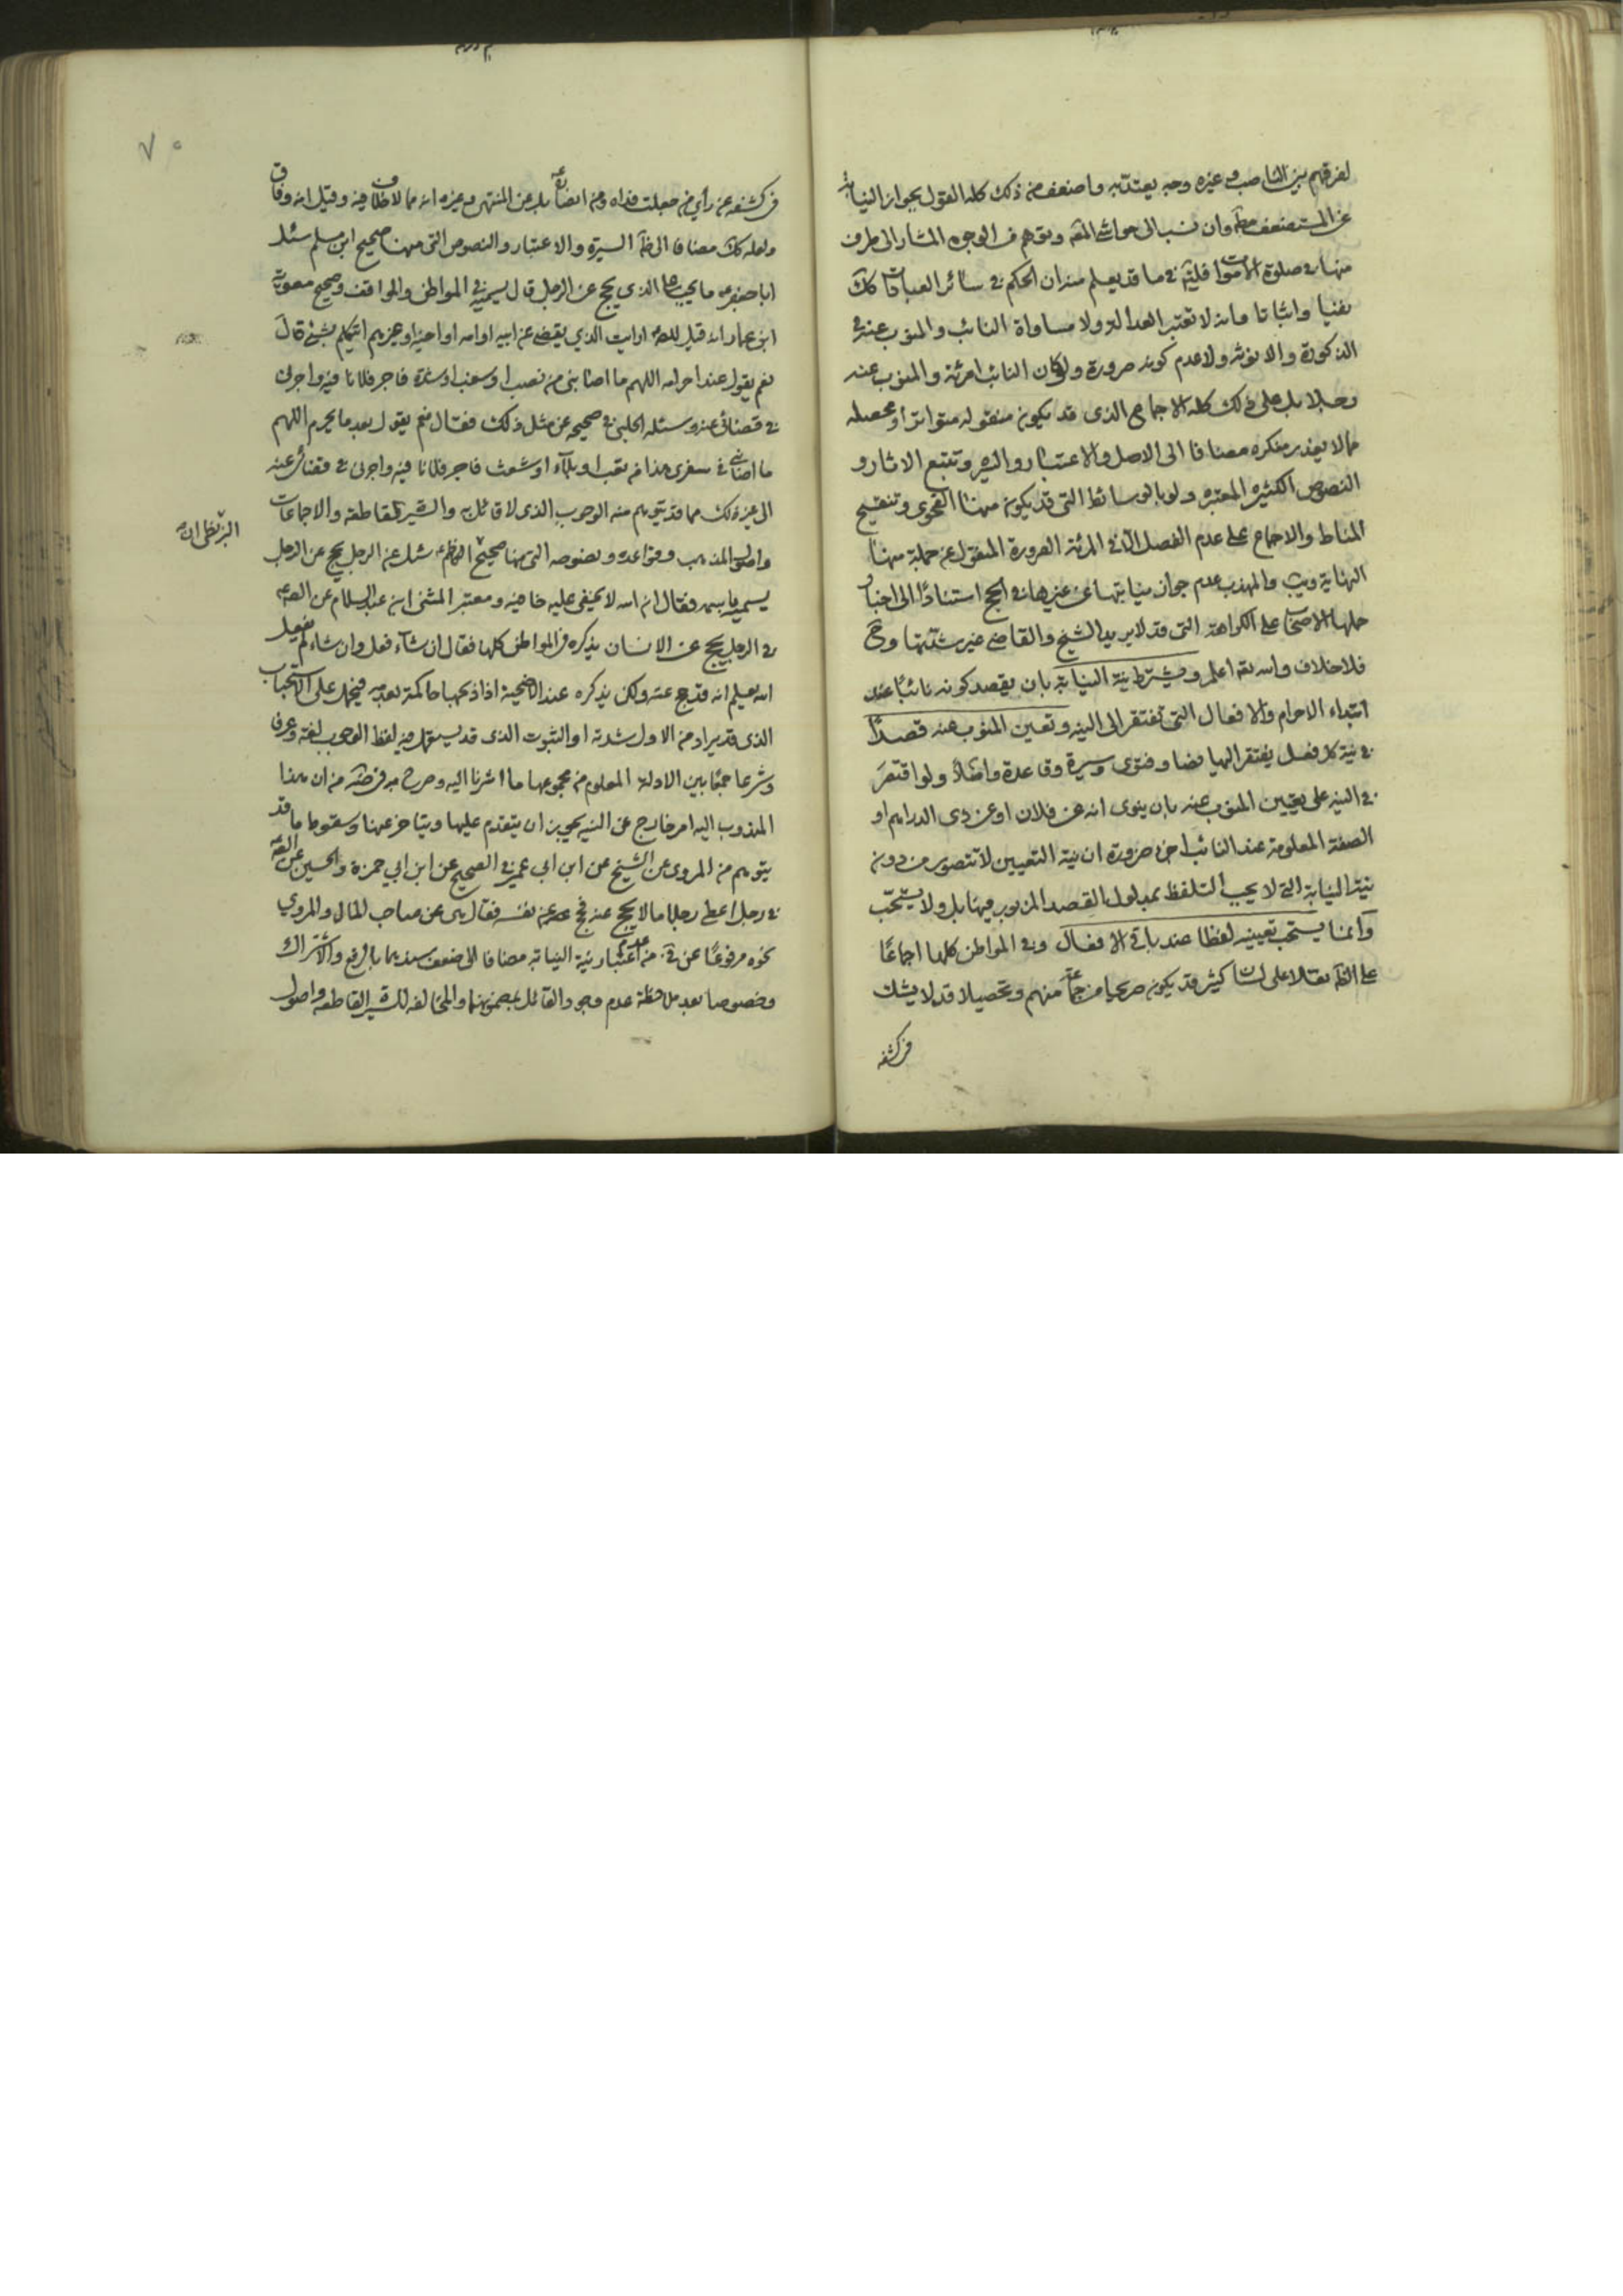 لفرقهم بين الناصب وغيره وجه يعتد به واضعف من ذلك كله القول بجواز النيابة
عن المستضعف مطم وان نسب الى حواشى المقه وتوهم من الوجوه المشار الى طرف
منها فى صلوة الاموات فليتم فى ما قد يعلم منه ان الحكم فى سائر العبادات كك
نفيا واثباتا وانه لا تعتبر العدالة ولا مساواة النائب والمنوب عنه فى
الذكورة والانوثه ولا عدم كونه صرورة ولو كان النائب امرئة والمنوب عنه
رجلا بل على ذلك كله الاجماع الذى قد يكون منقوله متواترا ومحصله
مما لا يعذر منكره مضافا الى الاصل والاعتبار والسيره وتتبع الاثار و
النصوص الكثيره المعتبره ولو بالوسائط التى قد يكون منها الفحوى وتنقيح
المناط والاجماع على عدم الفصل الا فى المرئة الصرورة المنقول عن جملة منها
النهاية ويب والمهذب عدم جواز نيابتها عن غيرها فى الحج استنادًا الى اخبار
حملها الاصحاب على الكراهة التى قد لا يريد الشيخ والقاضى غير شدتها وح
فلا خلاف والله تعه اعلم ويشترط نية النيابة بان يقصد كونه نائبًا عند
ابتداء الاحرام والافعال التى تفتقر الى النيه وتعين المنوب عنه قصدًا
فى نية كل فعل يفتقر اليها نصا وفتوى وسيرة وقاعدة واصلًا ولو اقتصر
فى النيه على تعيين المنوب عنه بان ينوى انه عن فلان او عن ذى الدراهم او
الصفة المعلومة عند النائب اجزء ضرورة ان نية التعيين لا تتصور من دون
نية النيابة التى لا يجب التلفظ بمدلول القصد المزبور فيها بل ولا يستحّب
وانما يستحب تعيينه لفظا عند باقى الافعال وفى المواطن كلها اجماعًا
على الظه نقلا على لسان كثير قد يكون صريحا من جماعة منهم وتحصيلا قد لا يشك
فى كشفه
فى كشفه عن رأى من جعلت فداه ومن ايضا بل عن المنتهى وغيره انه مما لا خلاف فيه وقيل انه وفاق
ولعله كك مضافا الى ظه السيرة والاعتبار والنصوص التى منها صحيح ابن مسلم سئل
ابا جعفر ع ما يجب على الذى يحج عن الرجل قال يسميه فى المواطن والمواقف وصحيح معوية
ابن عمار انه قيل للصه ارايت الذي يقضى عن ابيه او امه او اخيه او غيرهم ايتكلم بشئ قال
نعم يقول عند احرامه اللهم ما اصابنى من نصب او سغب او شدة فاجر فلانا فيه واجرنى
فى قضائى عنه وسئله الحلبى فى صحيحه عن مثل ذلك فقال نعم يقول بعد ما يحرم اللهم
ما اصابنى فى سفرى هذا من تعب او بلآء او شعث فاجر فلانا فيه واجرنى فى قضائى عنه
الى غير ذلك مما قد يتوهم منه الوجوب الذى لا قائل به والسيرة القاطعة والاجماعات
واصول المذهب وقواعده ونصوصه التى منها صحيح البزنطى انه سئل عن الرجل يحج عن الرجل
يسميه باسمه فقال ان الله لا يخفى عليه خافيه ومعتبر المثنى ابن عبد السلام عن الصه ع
فى الرجل يحج عن الانسان يذكره فى المواطن كلها فقال ان شآء فعل وان شاء لم يفعل
الله يعلم انه قد حج عنه ولكن يذكره عند الاضحية اذا ذبحها حاكمة بعدمه فيحمل على الاستحباب
الذى قد يراد من الاول شدته او الثبوت الذى قد يستعمل فيه لفظ الوجوب لغة وعرفا
وشرعا جمعًا بين الادلة المعلوم من مجموعها ما اشرنا اليه وصرح به فى ضه من ان هذا
المندوب اليه امر خارج عن النيه يجوز ان يتقدم عليها ويتاخر عنها وسقوط ما قد
يتوهم من المروى عن الشيخ عن ابن ابى عمير فى الصحيح عن ابن ابي حمزة والحسين عن الصه
فى رجل اعطى رجلا مالا يحج عنه فحج عن نفسه فقال هى عن صاحب المال والمروي
نحوه مرفوعًا عن ق من عدم اعتبار نية النيابة مضافا الى ضعف سنديهما بالرفع والاشتراك
وخصوصا بعد ملاحظة عدم وجود القائل بمضمونهما والمخالفه للسيره القاطعه واصول
البزنطى انه